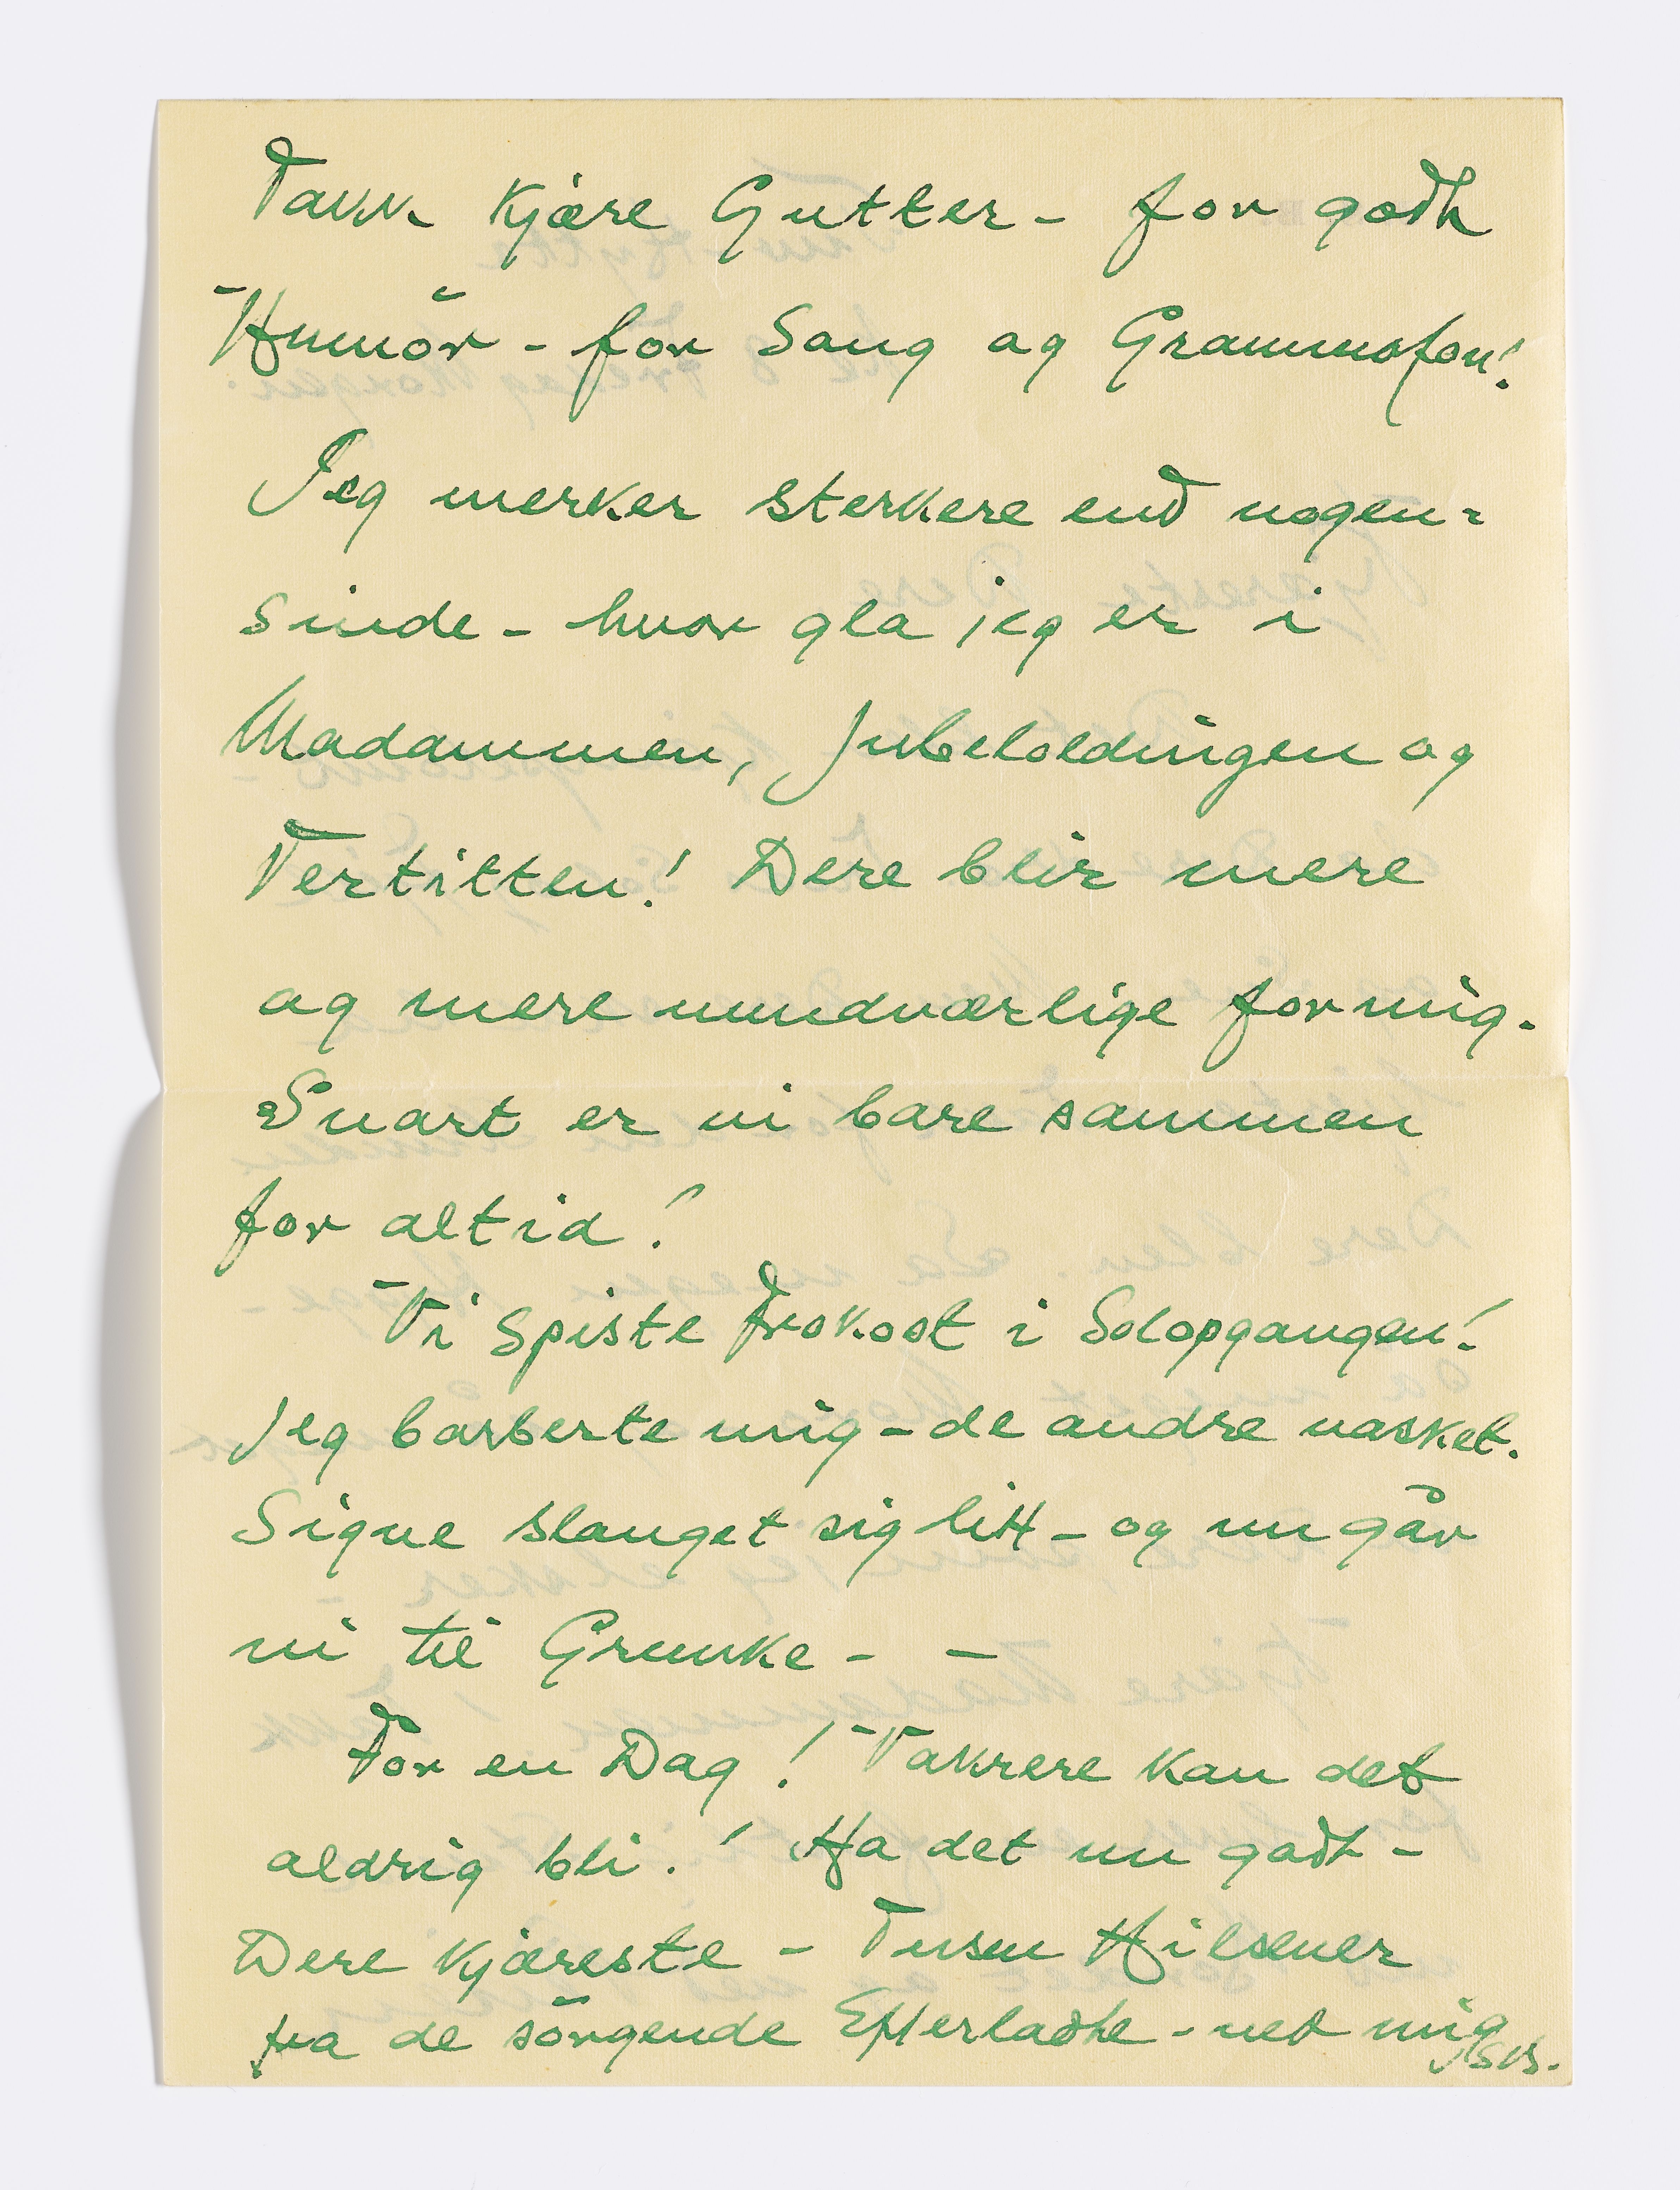 Takk Kjære Gutter - for godt
Humör - for Sang og Grammofon!
Jeg merker sterkere end nogen=
sinde - hvor gla jeg er i
Madammen, Jubeloldingen og
Tertitten! Dere blir mere
og mere uundværlige for mig.
Snart er vi bare sammen
for altid!
Vi spiste Frokost i Solopgangen!
Jeg barberte mig - de andre vasket.
Signe slanget sig litt - og nu går
vi til Grunke - -
For en Dag! Vakrere kan det
aldrig bli.! Ha det nu godt -
Dere Kjæreste - Tusen Hilsener
fra de sörgende Efterladte - ved mig